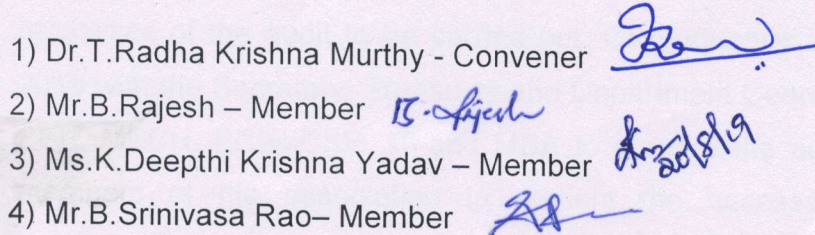 1) Dr.T.Radha Krishna Murthy - Convener
2) Mr.B.Rajesh – Member B. Rajesh
3) Ms.K.Deepthi Krishna Yadav – Member 20/8/19
4) Mr.B.Srinivasa Rao– Member